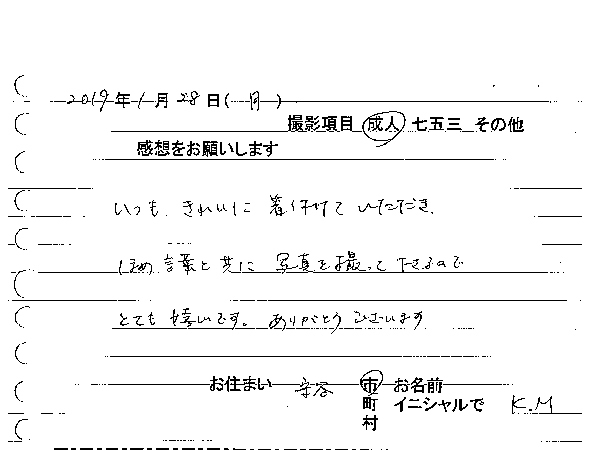 2019年1月28日(月)
撮影項目 成人 七五三 その他
感想をお願いします
いつも、きれいに着付けて いただき、
ほめ言葉と共に 写真を撮って下さるので
とても嬉しいです。ありがとうございます
お住まい 守谷 市 お名前
町 イニシャルで K.M
村